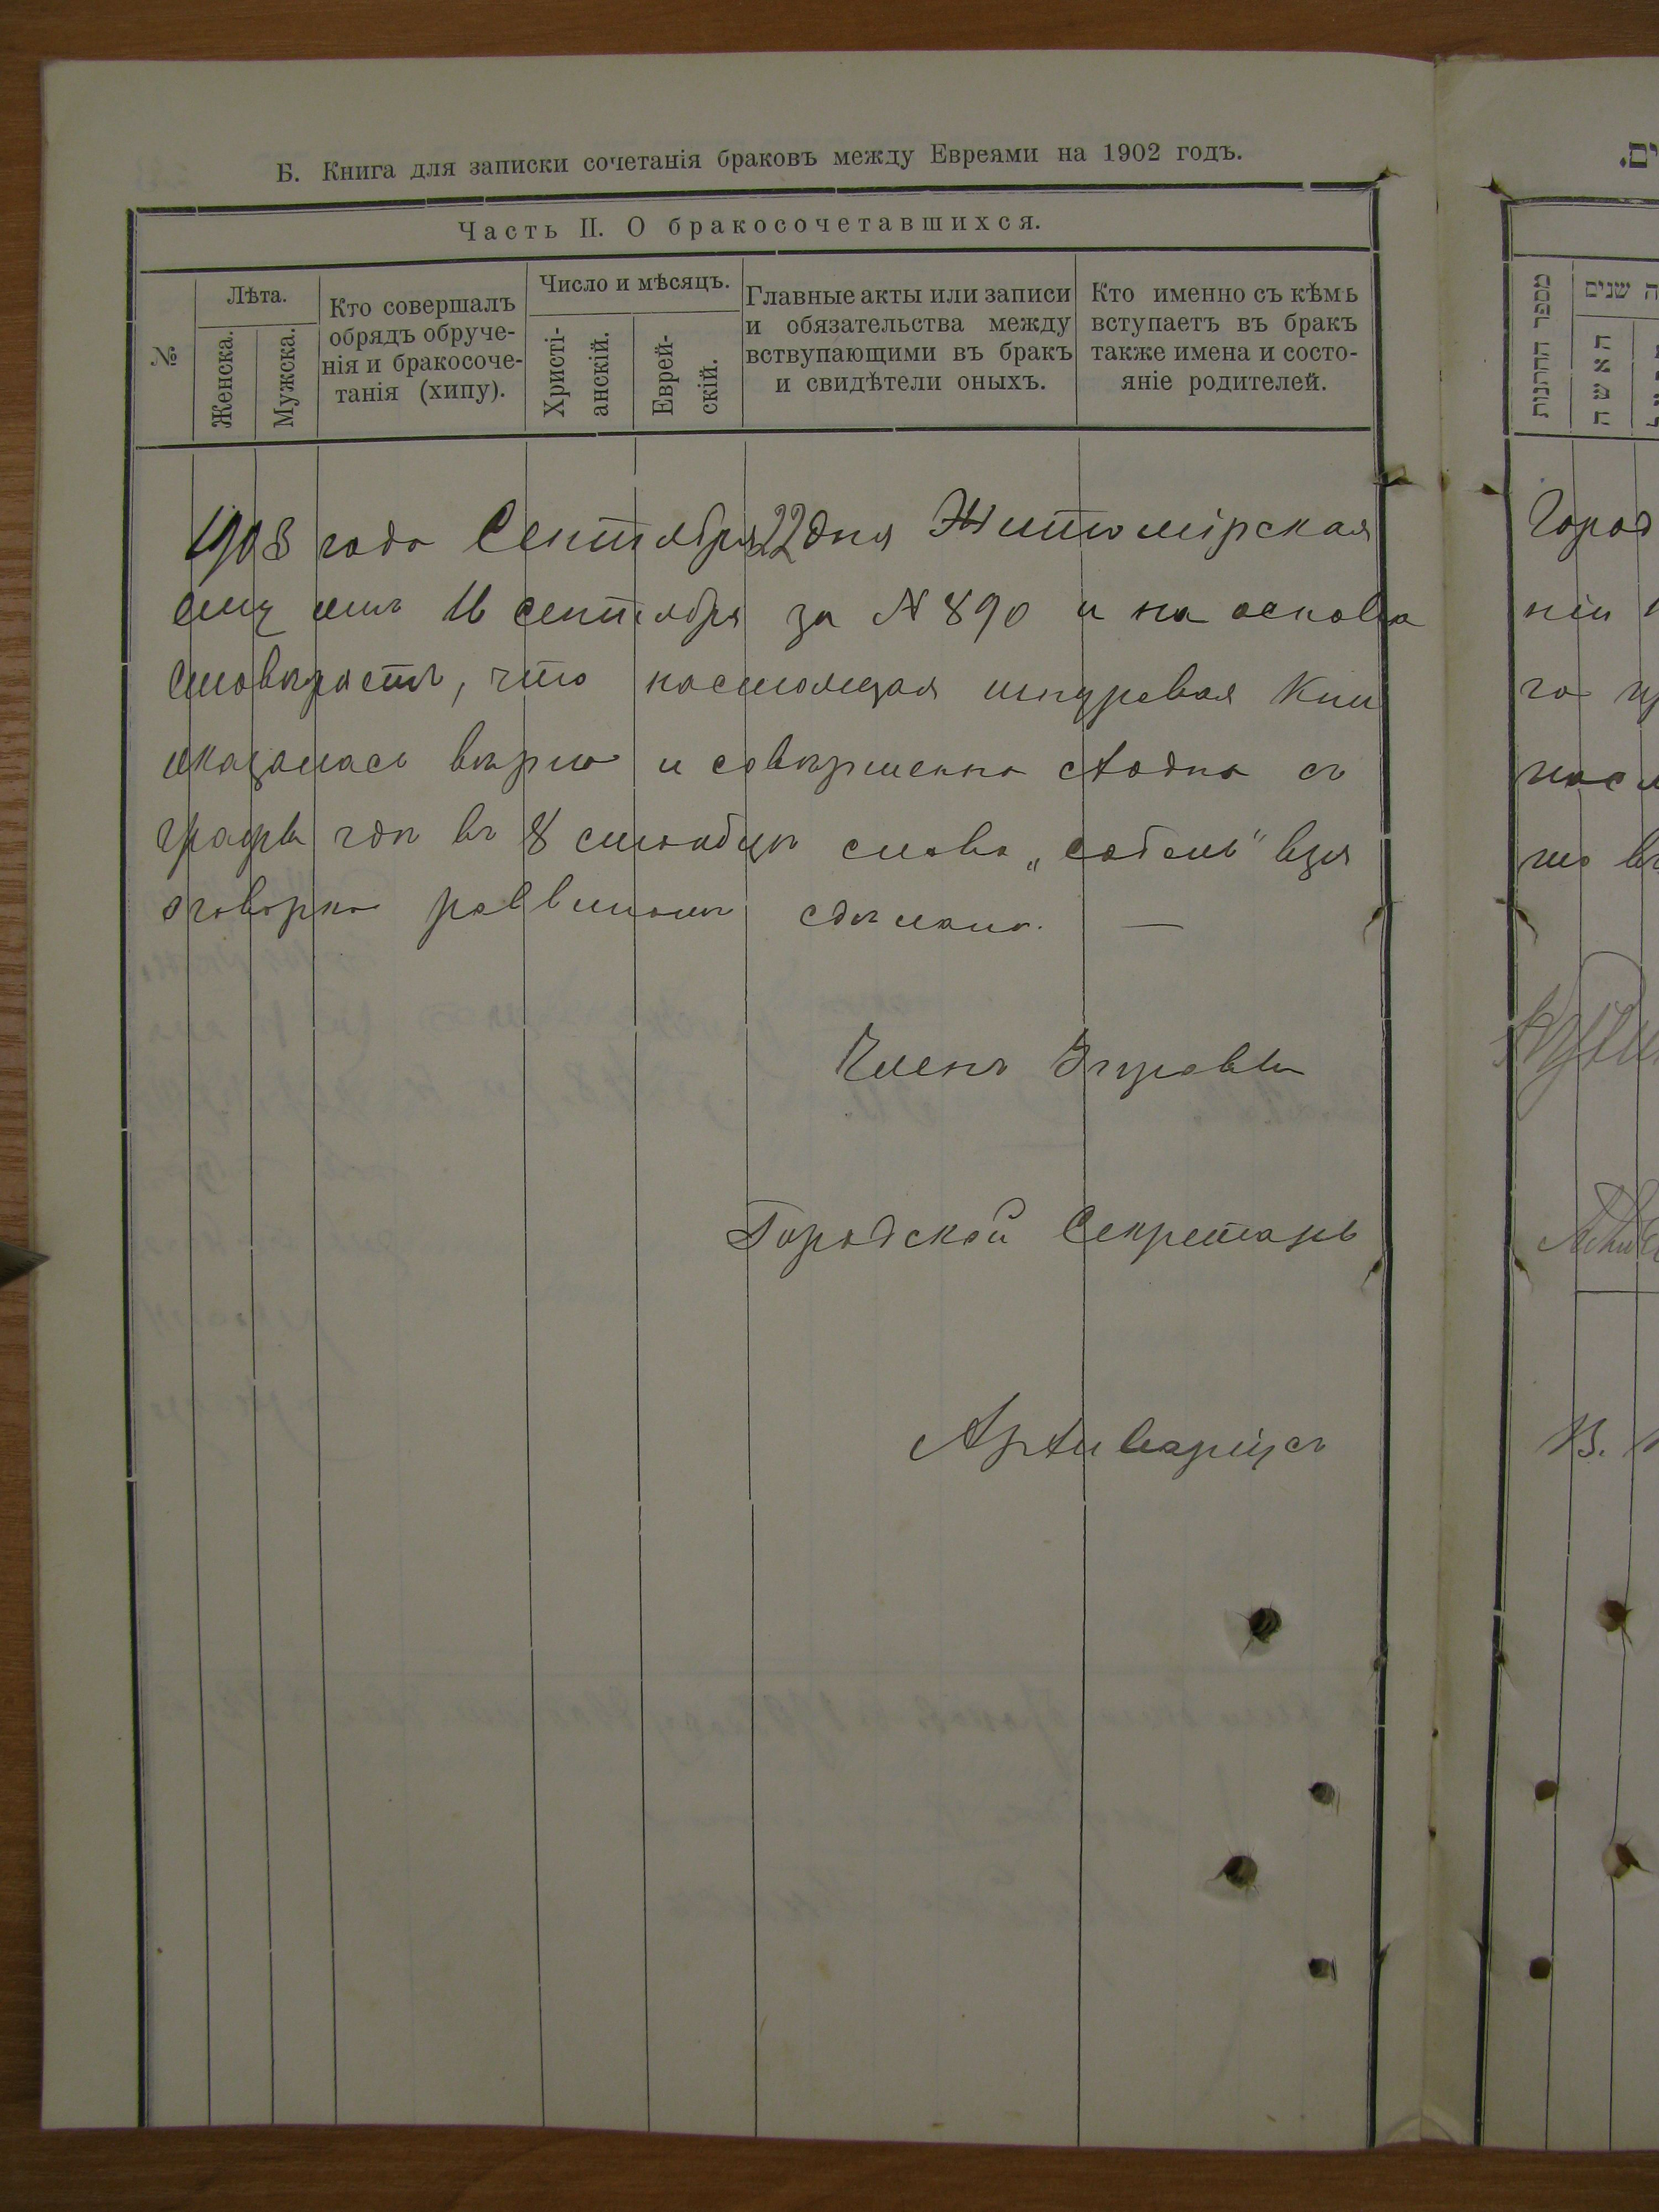 Б. Книга для записки сочетанія браковъ между Евреями на 1902 годъ.
Часть II. О бракосочетавшихся.
№
Лѣта.
Женска.
Мужска.
Кто совершалъ
обрядъ обруче-
нія и бракосоче-
танія (хипу).
Число и мѣсяцъ.
Христі-
анскій.
Еврей-
скій.
Главные акты или записи
и обязательства между
вствупающими въ бракъ
и свидѣтели оныхъ.
Кто именно съ кѣмъ
вступаетъ въ бракъ
также имена и состо-
яніе родителей.
1903 года Сентября 22 дня Житомірская
16 сентября за N 890 и на основа
что настоящая шнуровая Кни
оказалась вѣрно и совершенно сходно съ
графы гдѣ въ 8 столбцѣ слово „
оговорка раввиномъ сдѣлана. —
Членъ Управы
Городской Секретарь
Архиваріусъ
ים.
מספר החתונות
ה שנים
האשה
Город
ніи
го
но
В.